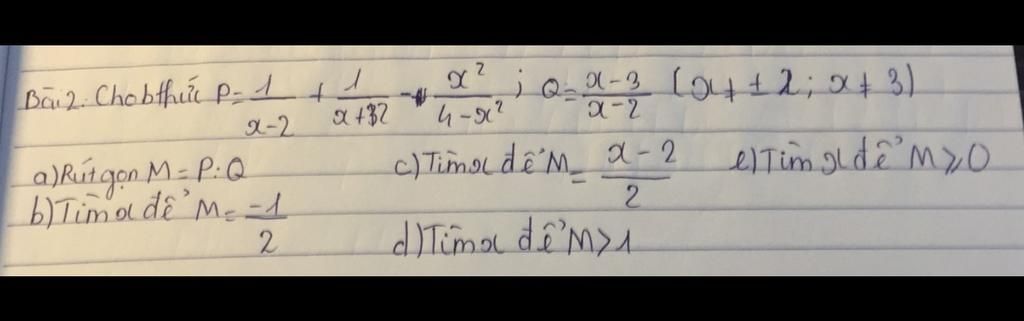 Bài 2: Cho bthức P = 1/(x-2) + 1/(x+2) - x²/(4-x²) ; Q = (x-3)/(x-2) (x ≠ ± 2; x ≠ 3)
a) Rút gọn M = P : Q
b) Tìm x để M = -1/2
c) Tìm x để M = (x-2)/2
d) Tìm x để M > 1
e) Tìm x để M ⩾ 0